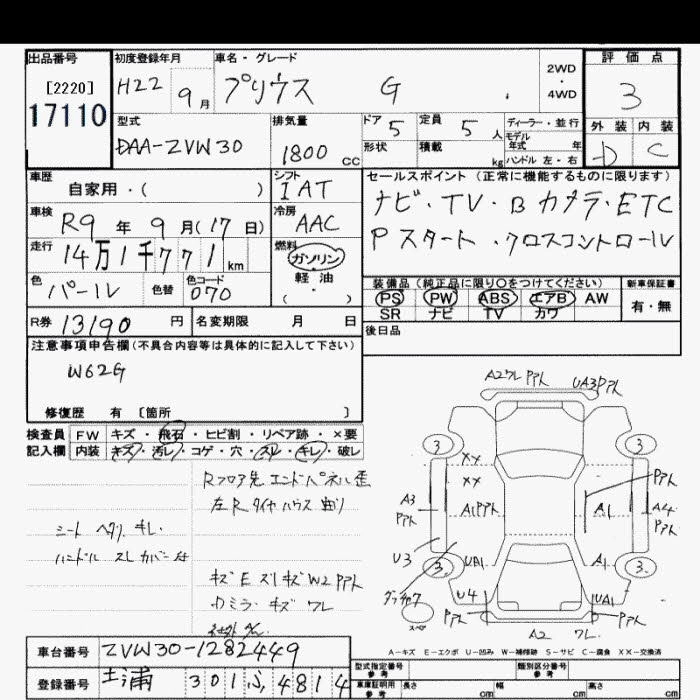 出品番号 初度登録年月 車名・グレード 評価点
[2220] H22 9月 プリウス G 2WD・4WD 3
17110
型式 排気量 ドア 5 定員 5人 ディーラー・並行 外装 内装
DAA-ZVW30 1800cc 形状 積載 kg モデル年式 年 D C
ハンドル 左・右
車歴 シフト セールスポイント (正常に機能するものに限ります)
自家用・( ) IAT ナビ・TV・Bカメラ・ETC
車検 冷房
R9年9月(17日) AAC Pスタート・クロスコントロール
走行 燃料
14万1千771km ガソリン
軽油
( )
色 色替 色コード 装備品 (純正品に限り○をつけてください) 新車保証書
パール 070 PS PW ABS エアB AW 有・無
SR ナビ TV カワ
R券 13190円 名変期限 月 日 後日品
注意事項申告欄(不具合内容等は具体的に記入して下さい)
W62G
修復歴 有 〔箇所 〕
検査員 FW キズ・飛石・ヒビ割・リペア跡・×要
記入欄 内装 キズ・汚レ・コゲ・穴・スレ・キレ・破レ
Rフロア先 エンドパネル歪
左Rタイヤハウス曲り
シートヘタリ キレ
ハンドル スレ カバー付
キズ E ズリキズ W2 PPトレ
Dミラー キズ ワレ
A2ワレ PPトレ UA3PPトレ
3 3
XX
XX
A3 PPトレ A1PPトレ A1 PPトレ A4 PPトレ
U3 UA1 A1
3 3
U4 UA1
PPトレ PPトレ
スペア A2 ワレ
A-キズ E-エクボ U-凹み W-補修跡 S-サビ C-腐食 XX-交換済
車台番号 ZVW30-1282449
登録番号 土浦 301 ふ 4814
型式指定番号 参考 類別区分番号 参考
車庫証明用 参考 長さ cm 幅 cm 高さ cm